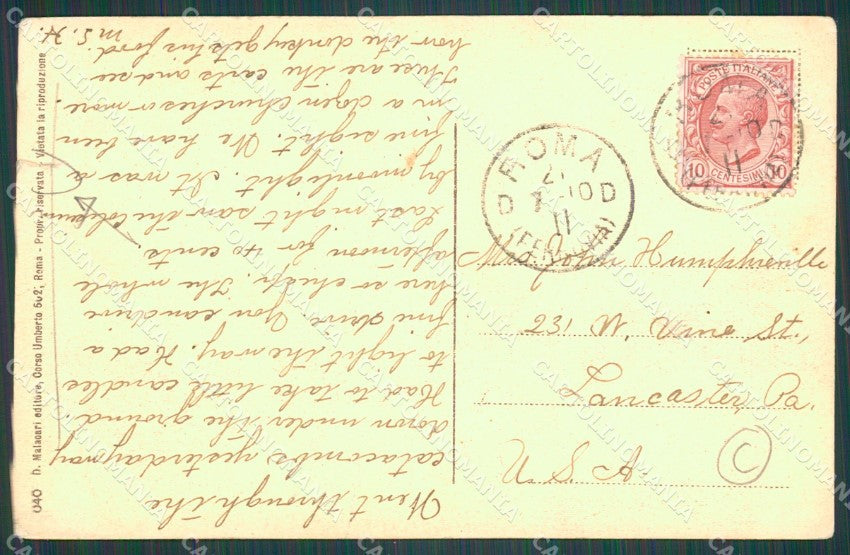 Went through the
catacombs yesterday way
down under the ground.
Had to take little candles
to light the way. Had a
fine drive. You can drive
here so cheap. The whole
afternoon for 40 cents.
Last night saw the Coliseum
by moonlight. It was a
fine sight. We have been
in a dozen churches or more.
These are the carts and see
how the donkey gets his food.
M. S. H.
Mrs. John Humphreville
231 W. Vine St.,
Lancaster, Pa.
U. S. A
C
POSTE ITALIANE
10 CENTESIMI 10
ROMA
D D
11
(FERROVIA)
11
040 D. Malacari editore, Corso Umberto 502, Roma - Propr. riservata - Vietata la riproduzione
CARTOLINOMANIA